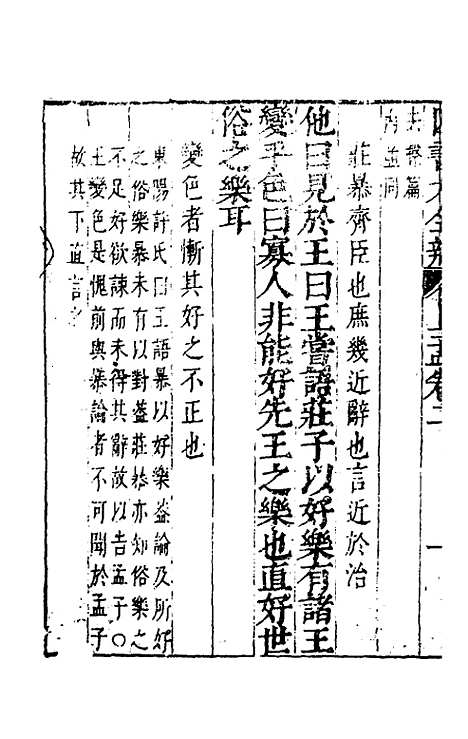 四書大全辯 上孟卷二 一
去聲篇
內並同
莊暴齊臣也庶幾近辭也言近於治
他日見於王曰王嘗語莊子以好樂有諸王
變乎色曰寡人非能好先王之樂也直好世
俗之樂耳
變色者慚其好之不正也
東陽許氏曰王語暴以好樂蓋論及所好
之俗樂暴未有以對蓋莊暴亦知俗樂之
不足好欲諫而未得其辭故以告孟子○
王變色是愧前與暴論者不可聞於孟子
故其下直言之